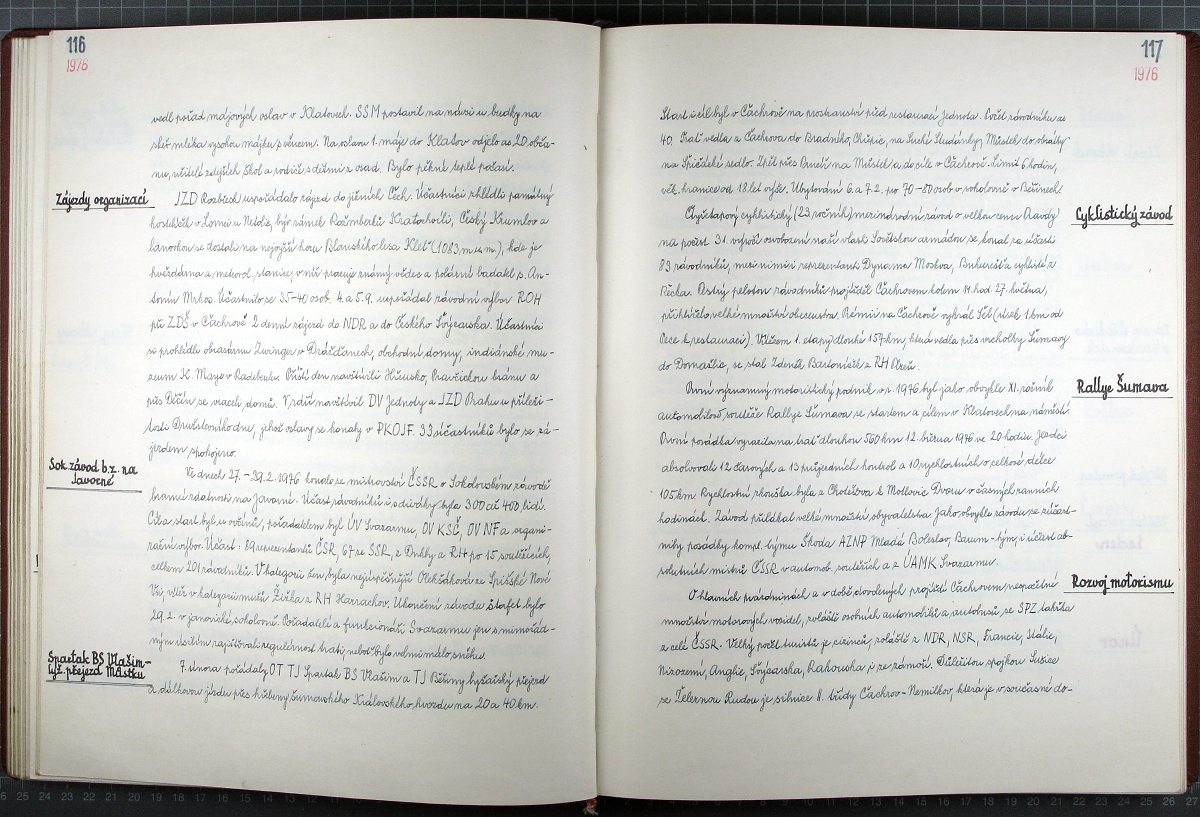 116
1976
vedl pořad májových oslav v Klatovech. SSM postavil na návsi u budky na
sběr mléka vysokou májku s věncem. Na oslavu 1. máje do Klatov odjelo as 20 obča-
nů, učitelé zdejších škol a rodiče s dětmi z osad. Bylo pěkné teplé počasí.
Zájezdy organizací
JZD Rozběsk uspořádalo zájezd do jižních Čech. Účastníci zhlédli památný
kostelíček v Lomci u Netolic, býv. zámek Rožmberků Kratochvíli, Český Krumlov a
lanovkou se dostali na nejvyšší horu Blanského lesa Kleť (1083 m n. m.), kde je
hvězdárna a meteorol. stanice, v nů pracuje známý vědec a polární badatel s. An-
tonín Mrkos. Účastnilo se 35-40 osob. 4. a 5. 9. uspořádal závodní výbor ROH
při ZDŠ v Čachrově 2 denní zájezd do NDR a do Českého Švýcarska. Účastníci
si prohlédli obrazárnu Zwinger v Drážďanech, obchodní domy, indiánské mu-
zeum K. Maye v Radebeulu. Příští den navštívili Hřensko, Pravčickou bránu a
přes Děčín se vraceli domů. V září navštívil DV Jednoty a JZD Prahu u příleži-
tosti Družstevního dne, jehož oslavy se konaly v PKOJF. 33 účastníků bylo se zá-
jezdem spokojeno.
Sok. závod b. z. na
Javorné
Ve dnech 27.-29. 2. 1976 konalo se mistrovství ČSSR o Sokolovském závodě
branné zdatnosti na Javorné. Účast závodníků i s diváky byla 300 až 400 lidí.
Cíl a start byl u ovčína, pořadatelem byl ÚV Svazarmu, OV KSČ, OV NF a organi-
zační výbor. Účast: 89 reprezentantů ČSR, 67 ze SSR, z Dukly a RH po 15 soutěžících,
celkem 201 závodníků. V kategorii žen byla nejúspěšnější Olekšáková ze Spišské Nové
Vsi, vítěz v kategorii mužů Žižka z RH Harrachov. Ukončení závodu štafet bylo
29. 2. v janovické sokolovně. Pořadatelé a funkcionáři Svazarmu jen s mimořád-
ným úsilím zajišťovali regulérnost tratí, neboť bylo velmi málo sněhu.
Spartak BS Vlašim-
lyž. přejezd Můstku
7. února pořádaly OT TJ Spartak BS Vlašim a TJ Běšiny lyžařský přejezd
a dálkovou jízdu přes hřebeny šumavského Královského hvozdu na 20 a 40 km.
117
1976
Start i cíl byl v Čachrově na prostranství před restaurací Jednota. Počet závodníků as
40. Trať vedla z Čachrova do Bradného, Chřepic, na Suché Studánky, Můstek do obrátky
na Špičácké sedlo. Zpět přes Pancíř na Můstek a do cíle v Čachrově. Limit 6 hodin,
věk. hranice od 18 let výše. Ubytování 6. a 7. 2. po 70-80 osob v sokolovně v Běšinech.
Cyklistický závod
Čtyřetapový cyklistický (23. ročník) mezinárodní závod o velkou cenu Pravdy
na počest 31. výročí osvobození naší vlasti Sovětskou armádou se konal za účasti
89 závodníků, mezi nimi i reprezentanti Dynama Moskva, Bukurešťa a cyklisté z
Řecka. Pestrý peloton závodníků projížděl Čachrovem kolem 14. hod. 27. května,
přihlíželo velké množství obecenstva. Prémii na Čachrově vyhrál Šél (úsek 1 km od
Pece k restauraci). Vítězem 1. etapy dlouhé 157 km, která vedla přes vrcholky Šumavy
do Domažlic, se stal Zdeněk Bartoníček z RH Plzeň.
Rallye Šumava
První významný motoristický podnik v r. 1976 byl jako obvykle XI. ročník
automobilové soutěže Rallye Šumava se startem a cílem v Klatovech na náměstí.
První posádka vyrazila na trať dlouhou 560 km 12. března 1976 ve 20 hodin. Jezdci
absolvovali 12 časových a 13 průjezdních kontrol a 10 rychlostních o celkové délce
105 km. Rychlostní zkouška byla z Chotěšova k Motlovic Dvoru v časných ranních
hodinách. Závod přilákal velké množství obyvatelstva. Jako obvykle závodu se zúčast-
nily posádky kompl. týmu Škoda AZNP Mladá Boleslav, Barum-tým, i účast ab-
solutních mistrů ČSSR v automob. soutěžích a z ÚAMK Svazarmu.
Rozvoj motorismu
O hlavních prázdninách a v době dovolených projíždí Čachrovem nespočetné
množství motorových vozidel, zvláště osobních automobilů a autobusů se SPZ takřka
z celé ČSSR. Velký počet turistů je z ciziny, zvláště z NDR, NSR, Francie, Itálie,
Nizozemí, Anglie, Švýcarska, Rakouska, i ze zámoří. Důležitou spojkou Sušice
se Železnou Rudou je silnice II. třídy Čachrov-Nemilkov, která je v současné do-